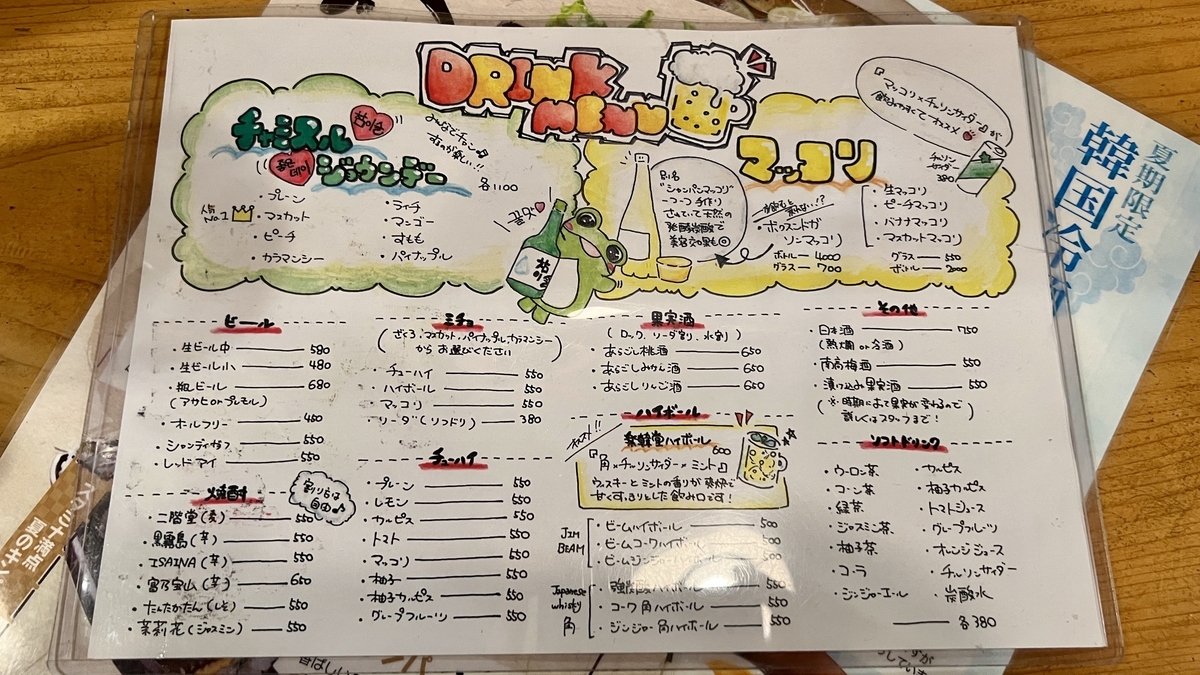 DRINK
MENU
チャミスル
참이슬
좋은데이
ジョウンデー
みんなでチャン♪
各1100
・プレーン
人気No.1
・マスカット
・ピーチ
・カラマンシー
・ライチ
・マンゴー
・すもも
・パイナップル
マッコリ
『マッコリ×チャルリンサイダー』が
飲みやすくてオススメ
サイダー
380
別名
"シャンパンマッコリ"
一つ一つ手作り
されていて天然の
発酵炭酸で
美容効果も◎
・ボクスンドガ
ソンマッコリ
ボトル 4000
グラス 700
・生マッコリ
・ピーチマッコリ
・バナナマッコリ
・マスカットマッコリ
グラス 550
ビール
・生ビール中 580
・生ビール小 480
・瓶ビール 680
(アサヒ or プレモル)
・オールフリー 450
・シャンディガフ 550
・レッドアイ 550
焼酎
割り方は
自由♪
・二階堂(麦) 550
・黒霧島(芋) 550
・ISAINA(芋) 550
・富乃宝山(芋) 650
・たんたかたん(しそ) 550
・茉莉花(ジャスミン) 550
ミチョ
(ざくろ、マスカット、パイナップル、カラマンシー
からお選びください)
・チューハイ 550
・ハイボール 550
・マッコリ 550
・ソーダ(ソフドリ) 380
チューハイ
・プレーン 550
・レモン 550
・カルピス 550
・トマト 550
・マッコリ 550
・柚子 550
・柚子カルピス 550
・グレープフルーツ 550
果実酒
(ロック、ソーダ割り、水割)
・あらごし桃酒 650
・あらごしみかん酒 650
・あらごしりんご酒 650
ハイボール
オススメ!!
ハイボール
600
『角×チャルリンサイダー×ミント』
ウィスキーとミントの香りが爽快で
甘くすっきりとした飲み口です!
JIM
BEAM
・ビームハイボール 500
・ビームコークハイボール 500
・ビームジンジャーハイボール 500
Japanese
whisky
角
・強炭酸ハイボール 550
・コーク角ハイボール 550
・ジンジャー角ハイボール 550
その他
・日本酒 750
(熱燗 or 冷酒)
・南高梅酒 550
・漬け込み果実酒 550
(※時期によって果実が変わるので
詳しくはスタッフまで!)
ソフトドリンク
・ウーロン茶
・コーン茶
・緑茶
・ジャスミン茶
・柚子茶
・コーラ
・ジンジャーエール
・カルピス
・柚子カルピス
・トマトジュース
・グレープフルーツ
・オレンジジュース
・チャルリンサイダー
・炭酸水
各380
夏期限定
韓国冷